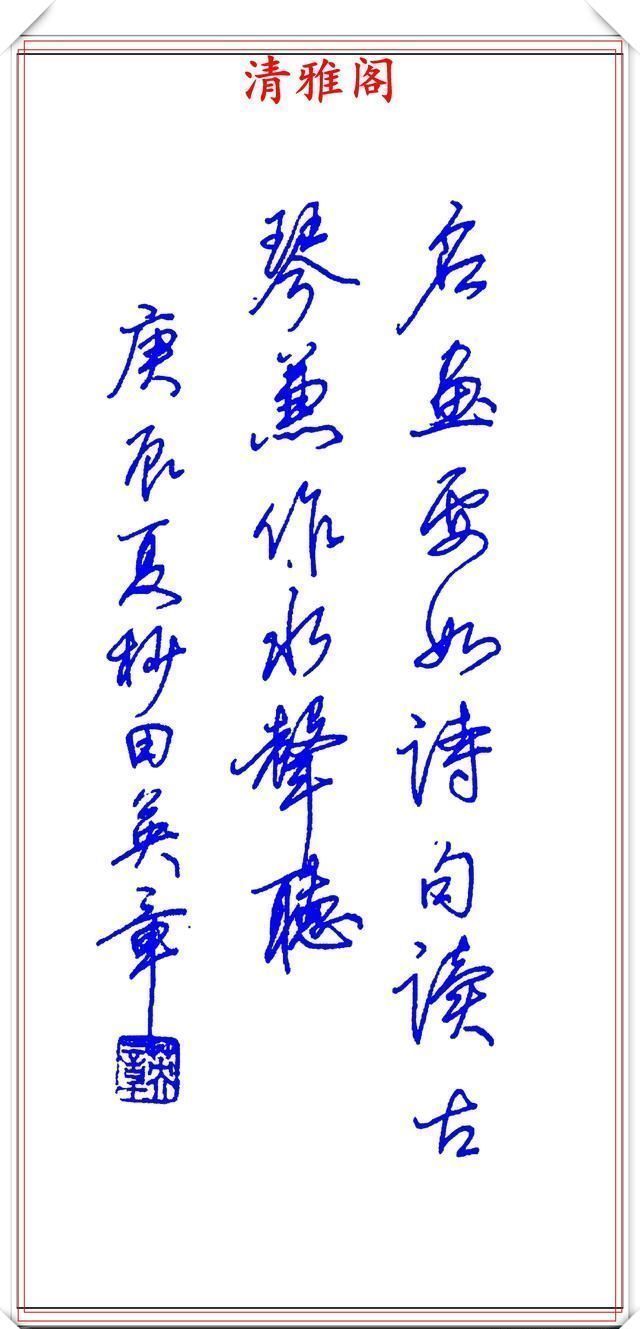 清雅阁
名画要如诗句读古
琴兼作水聲聽
庚辰夏杪田英章
英章